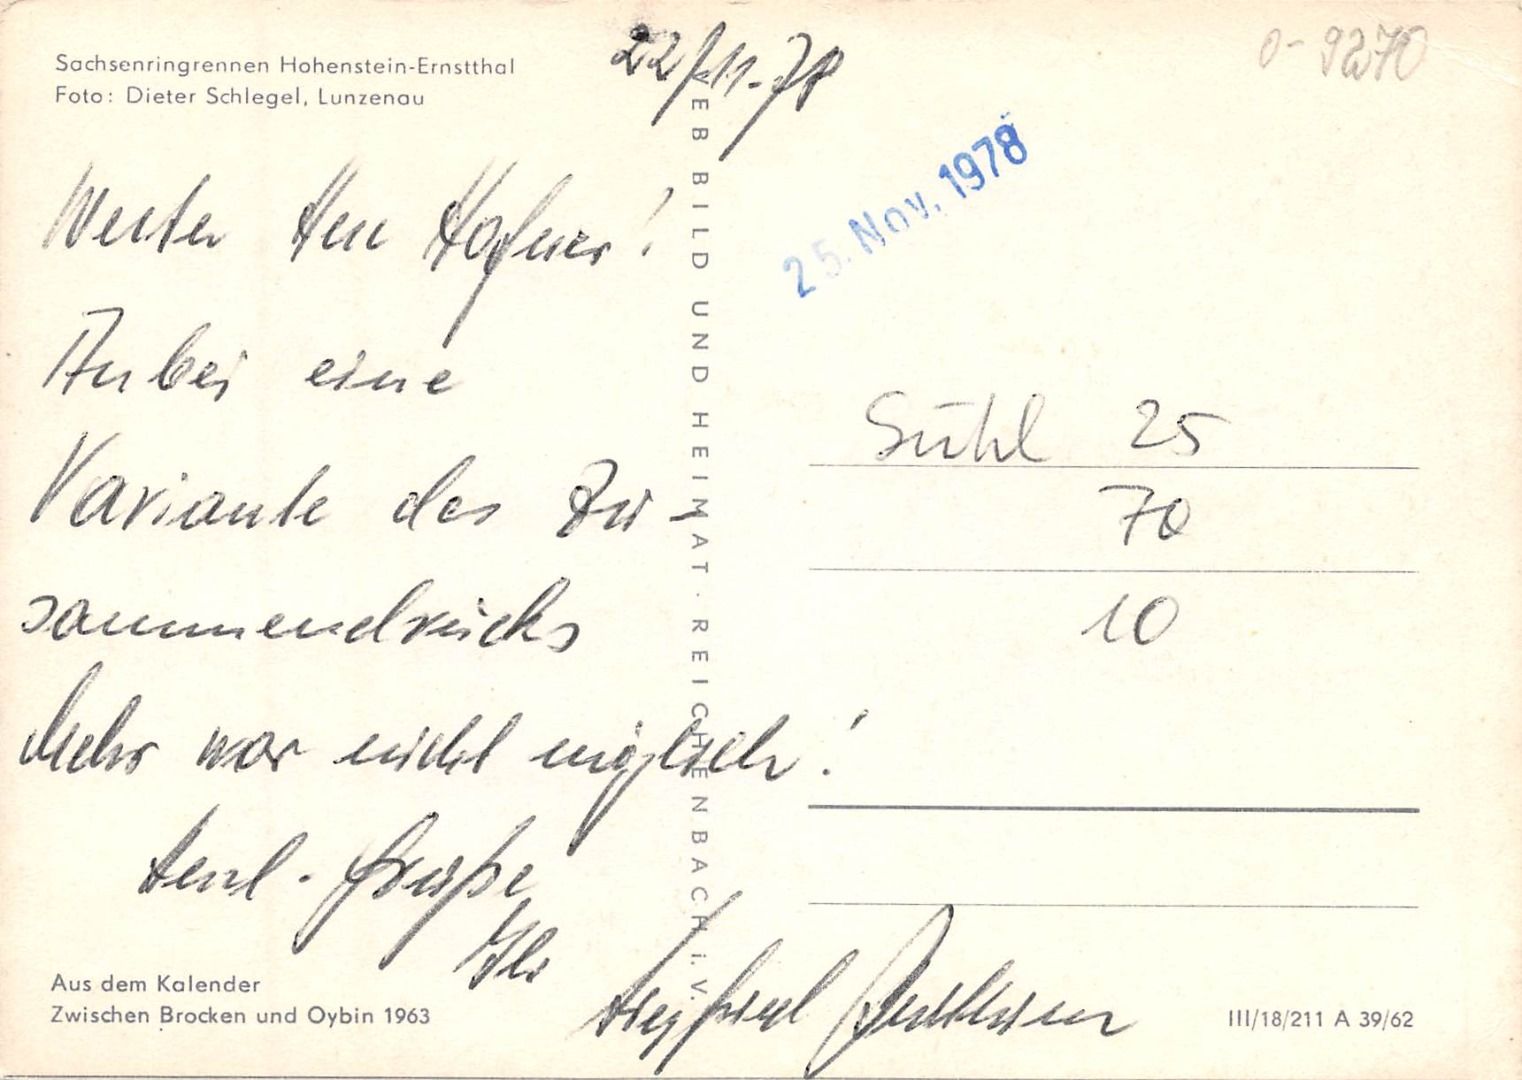 Sachsenringrennen Hohenstein-Ernstthal
Foto: Dieter Schlegel, Lunzenau
22/11.78
0-9270
25. Nov. 1978
Werter Herr Hafner!
Anbei eine
Variante des Zu-
sammendrucks
Mehr war nicht möglich!
Herzl. Grüße
Ihr
Siegfried
Suhl 25
70
10
VEB BILD UND HEIMAT · REICHENBACH i. V.
Aus dem Kalender
Zwischen Brocken und Oybin 1963
III/18/211 A 39/62